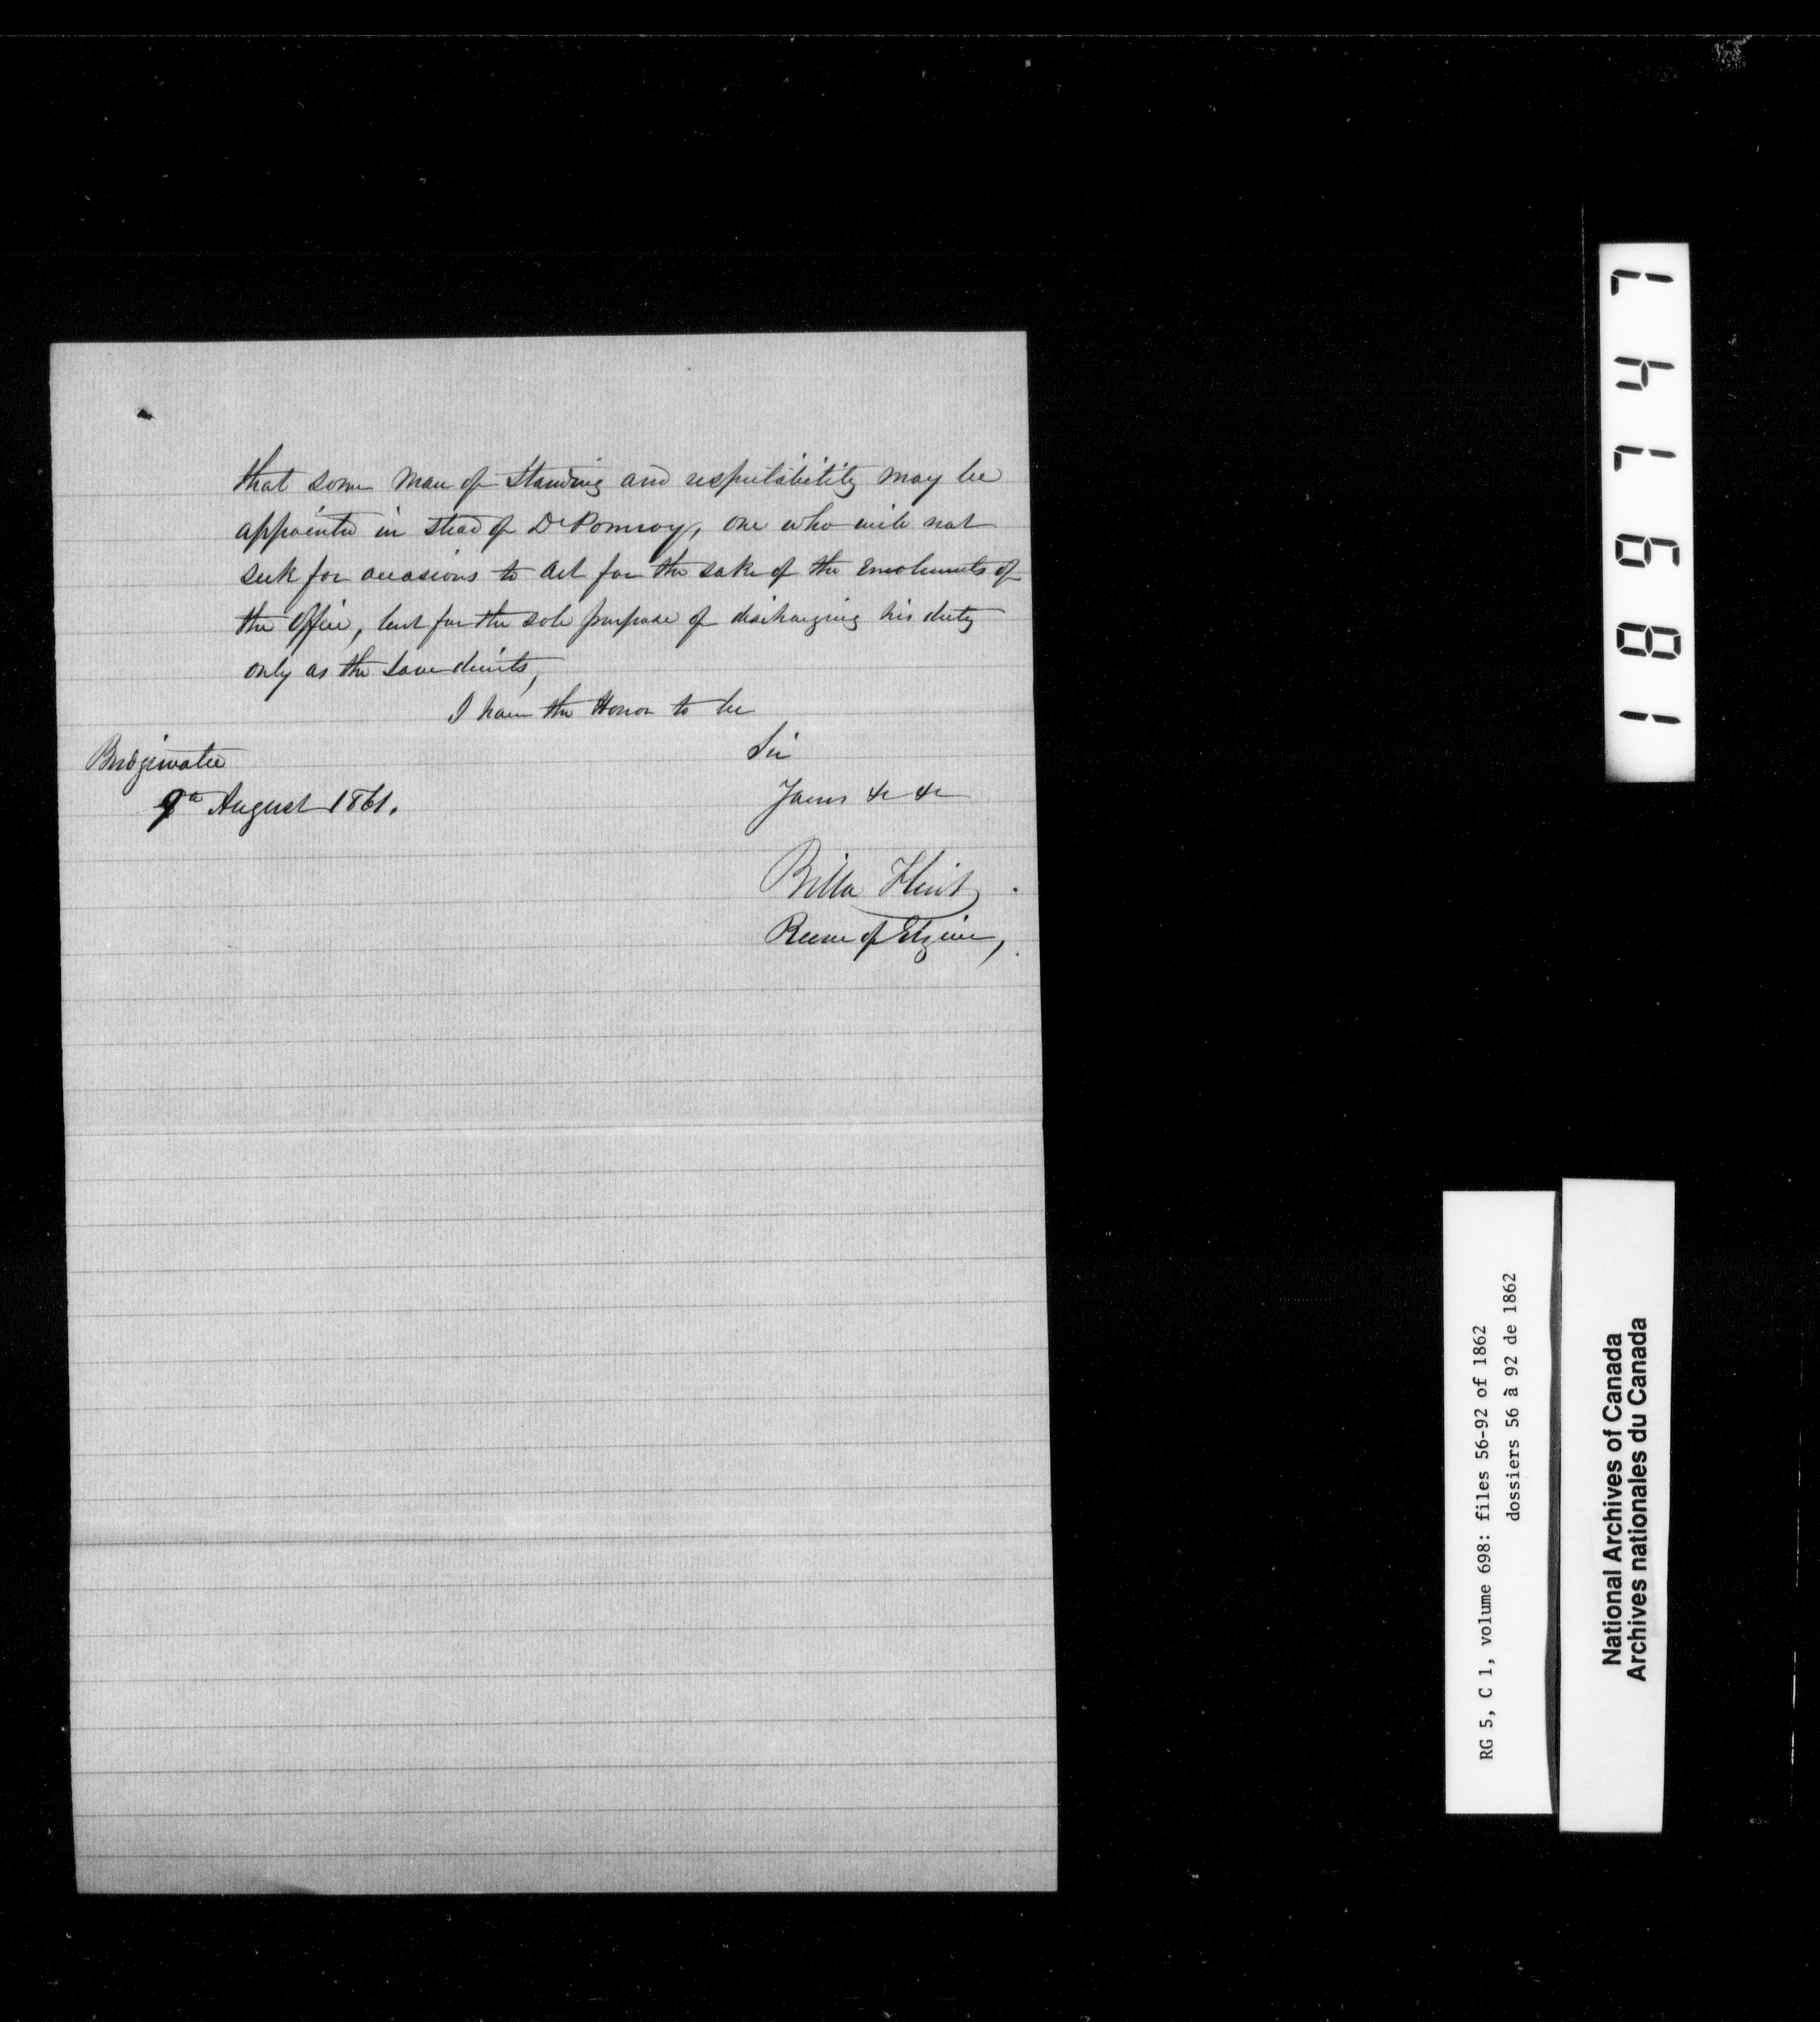 that some man of Standing and respectability may be
appointed in stead of Dr Pomroy, one who will not
seek for occasions to act for the sake of the Emoluments of
the Office, but for the sole purpose of discharging his duty
only as the Law directs,
I have the Honor to be
Sir
Bridgewater
9th August 1861.
Yours &c &c
Billa Flint
Reeve of Elzivir,
189747
RG 5, C 1, volume 698: files 56-92 of 1862
dossiers 56 à 92 de 1862
National Archives of Canada
Archives nationales du Canada